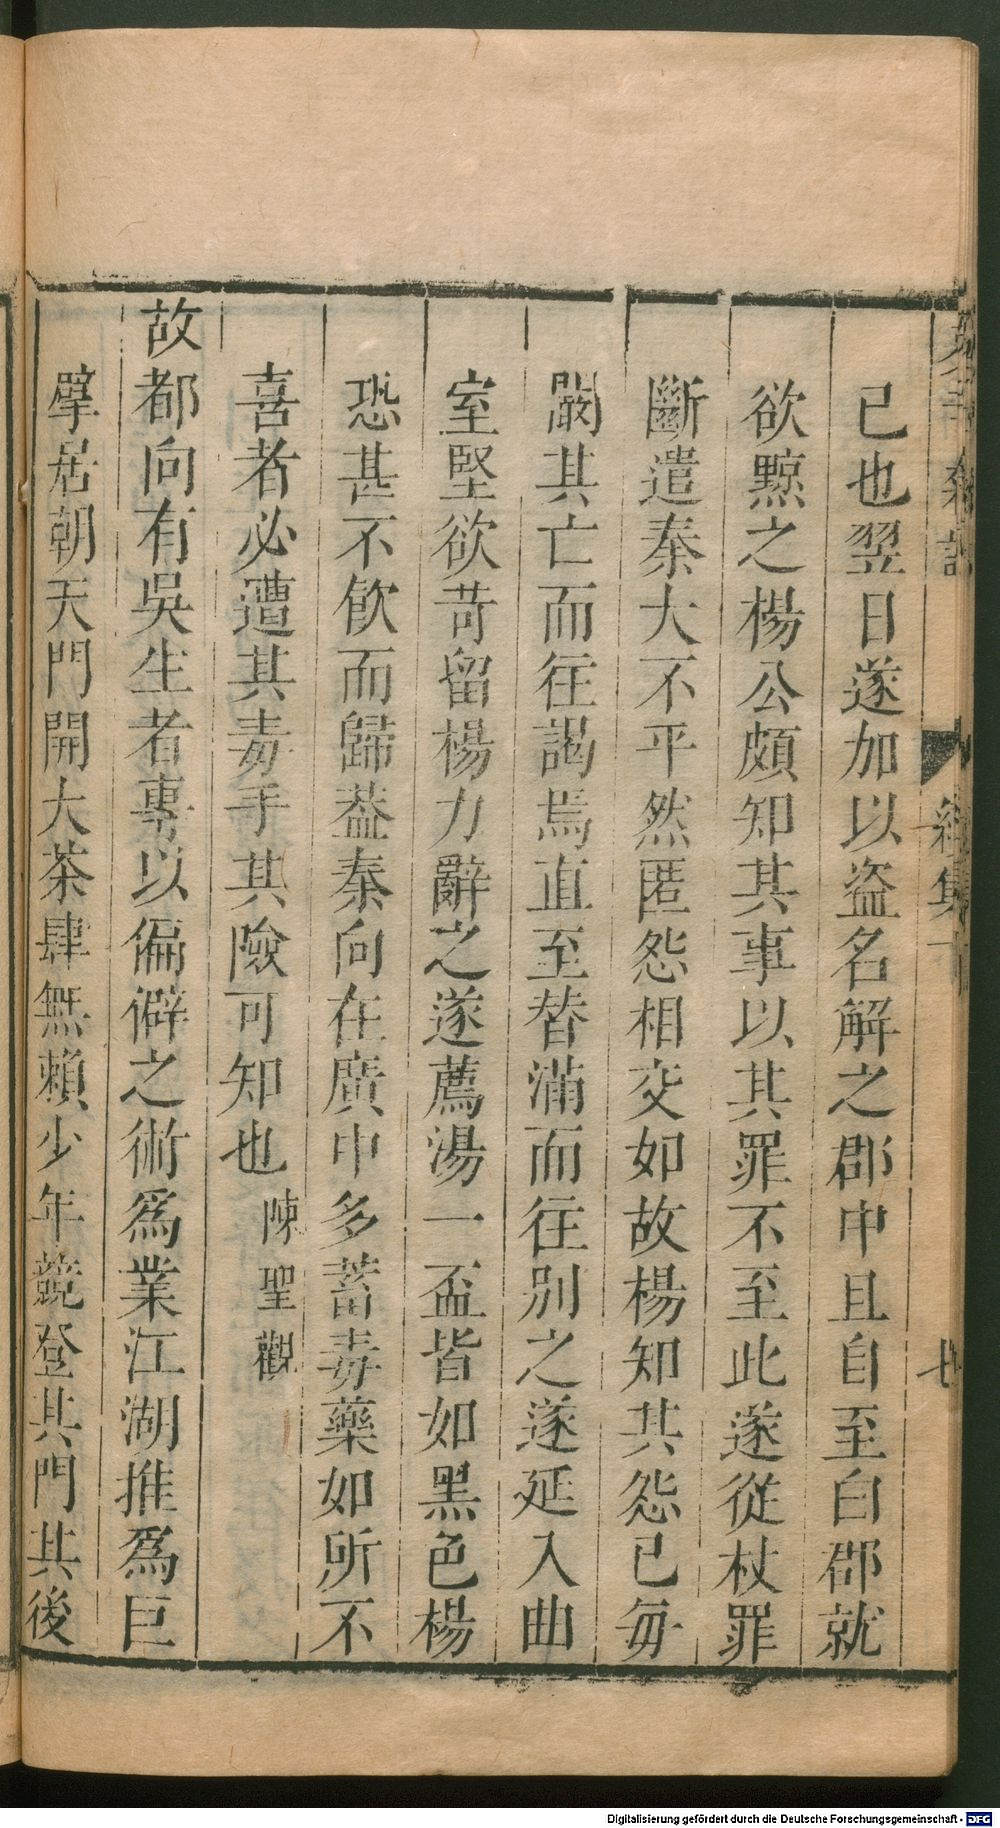 已也翌日遂加以盜名解之郡中且自至白郡就
欲黥之楊公頗知其事以其罪不至此遂從杖罪
斷遣秦大不平然匿怨相交如故楊知其怨已每
闞其亡而往謁焉直至替滿而往別之遂延入曲
室堅欲苛留楊力辭之遂薦湯一盃皆如黑色楊
恐甚不飲而歸葢秦向在廣中多蓄毒藥如所不
喜者必遭其毒手其險可知也 陳聖觀
故都向有吳生者專以偏僻之術爲業江湖推爲巨
擘居朝天門開大茶肆無賴少年競登其門其後
續集下
Digitalisierung gefördert durch die Deutsche Forschungsgemeinschaft - DFG